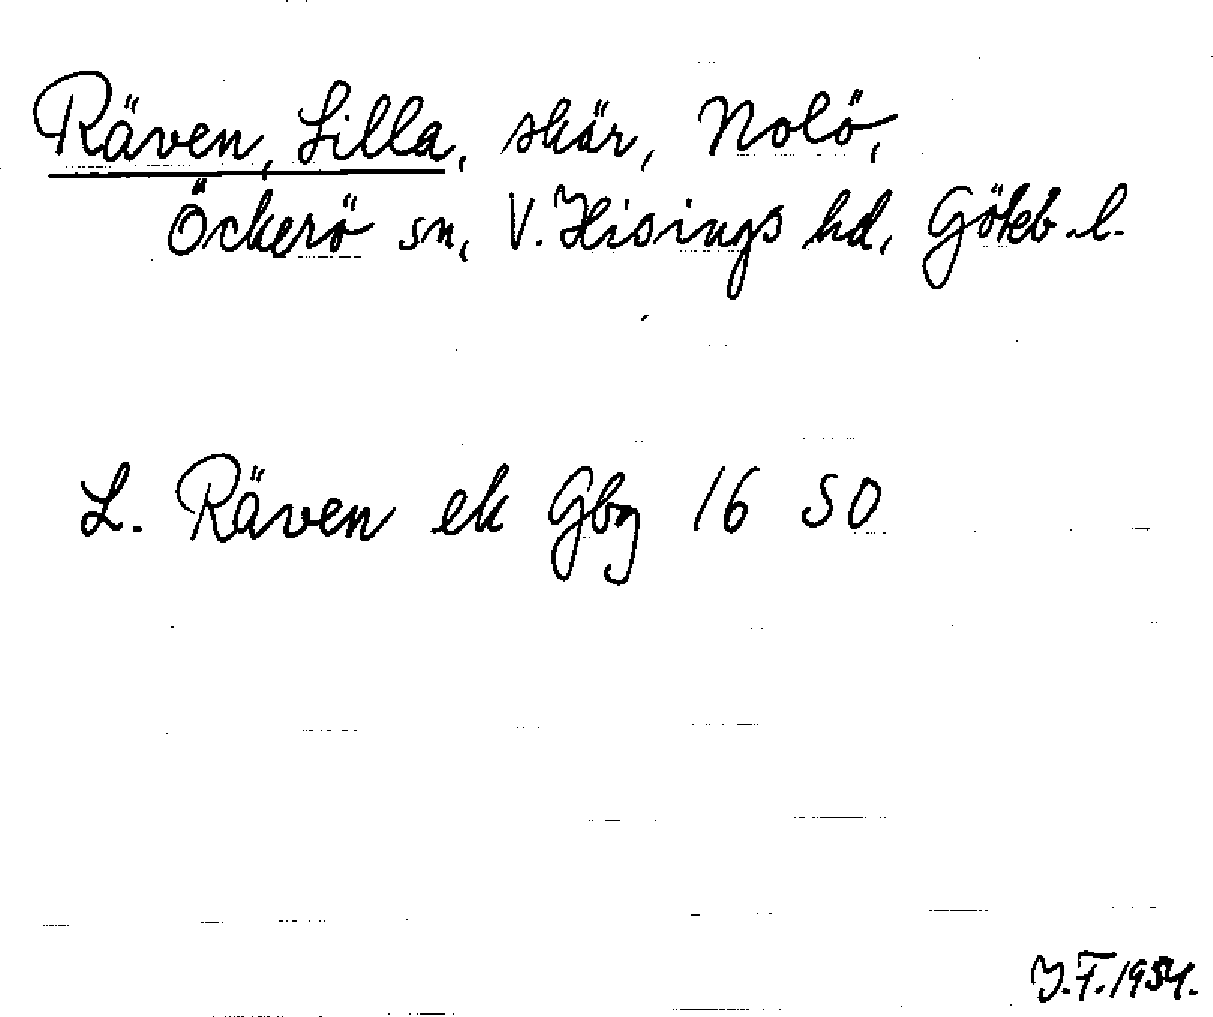 Räven, Lilla, skär, Nolö,
Öckerö sn, V. Hisings hd, Göteb. l.
L. Räven ek Gbg 16 SO
J.F. 1954.